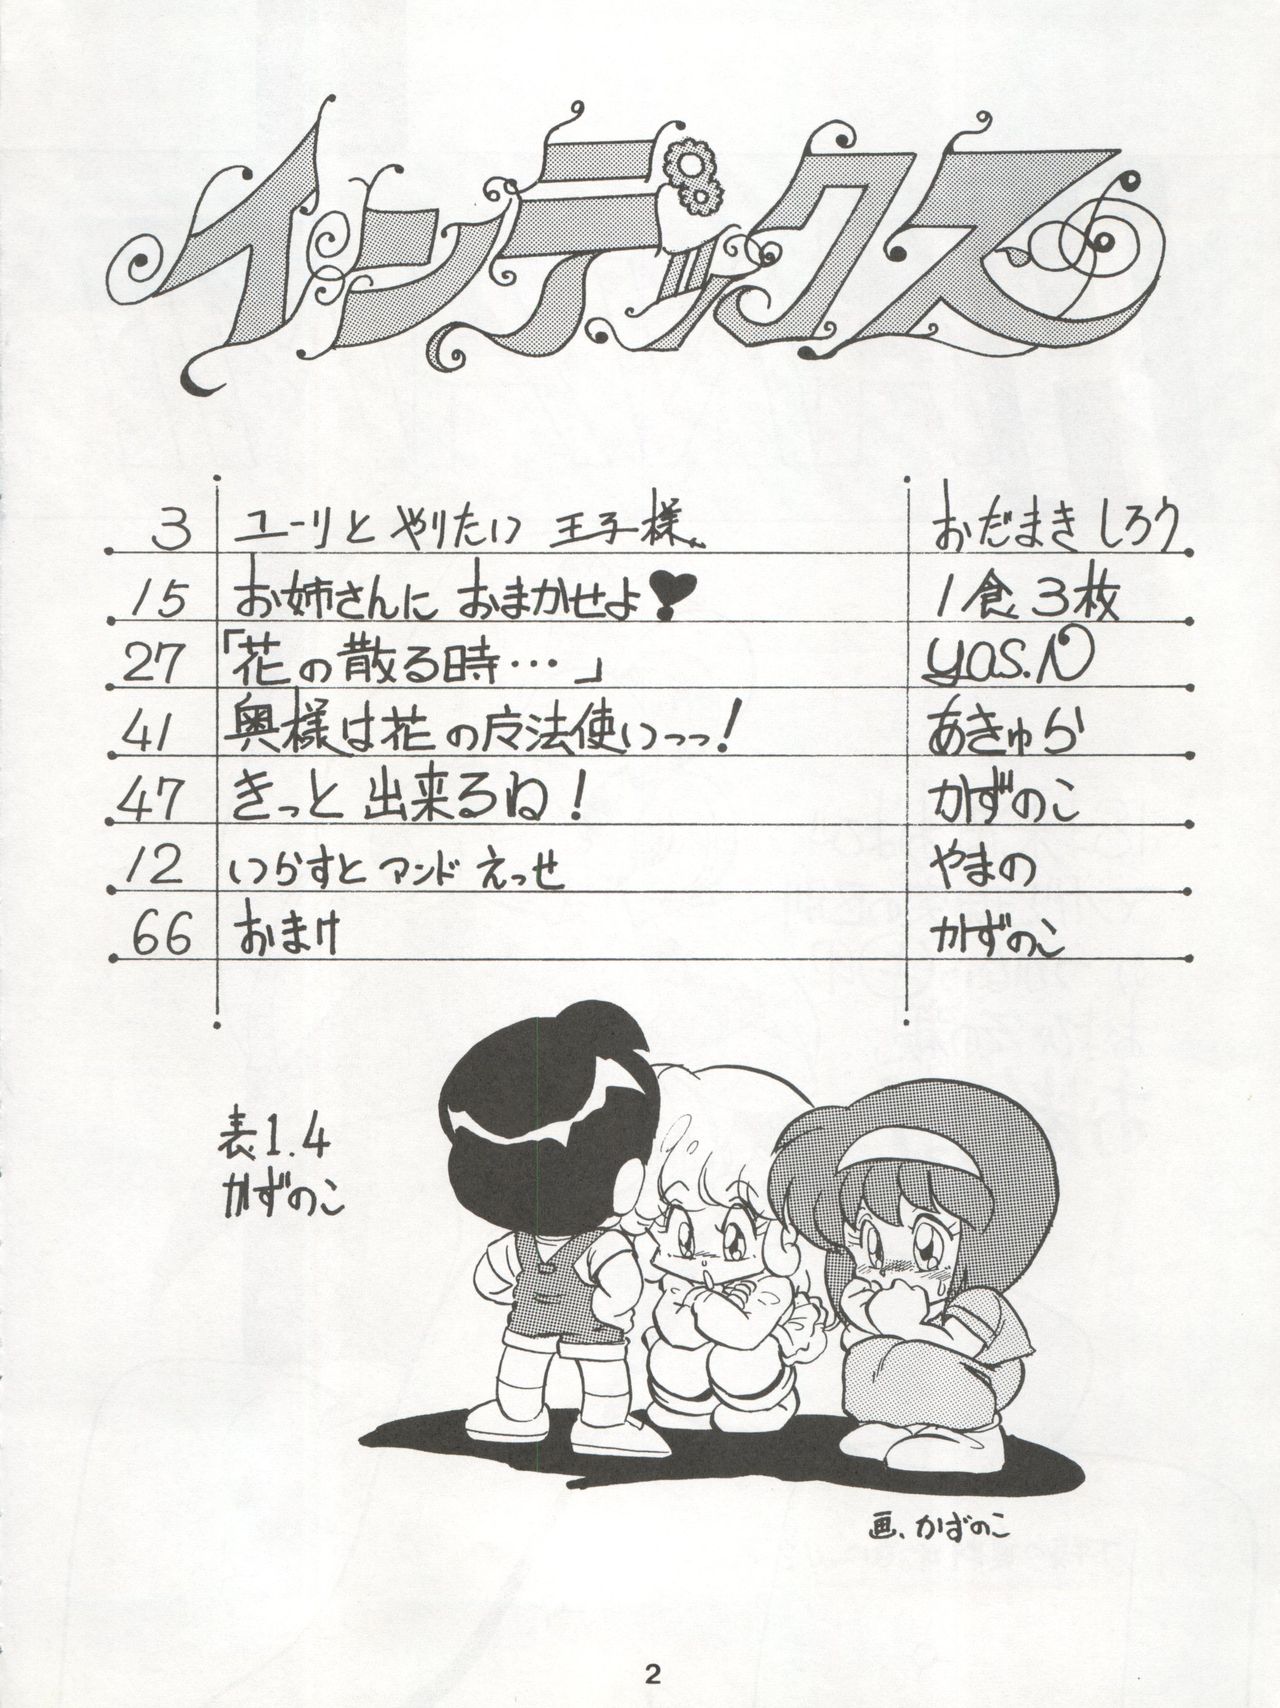 インデックス
3 ユーリとやりたい王子様
おだまきしろう
15 お姉さんにおまかせよ
1食3枚
27 「花の散る時…」
yas.N
41 奥様は花の魔法使いっっ!
あきゅら
47 きっと出来るね!
かずのこ
12 いらすとアンドえっせ
やまの
66 おまけ
かずのこ
表1.4
かずのこ
画、かずのこ
2